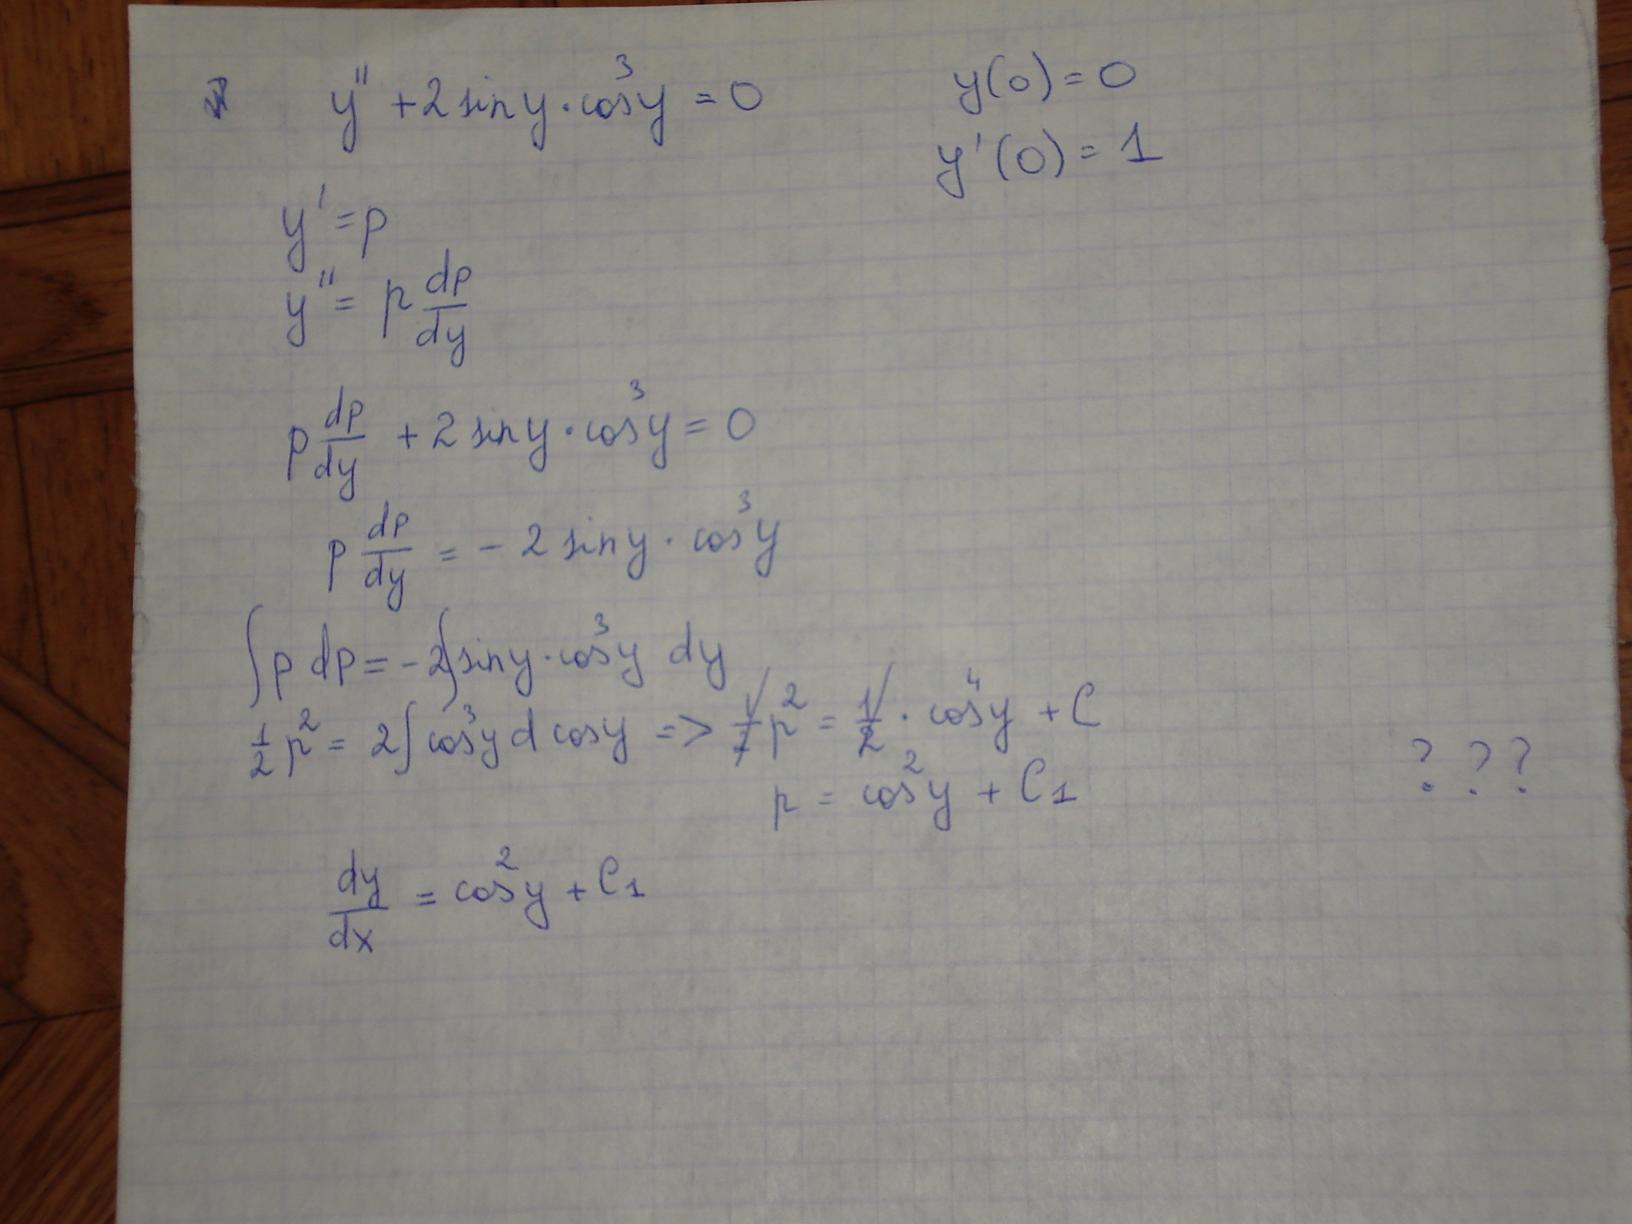 y'' + 2 sin y · cos³y = 0
y(0) = 0
y'(0) = 1
y' = p
y'' = p dp/dy
p dp/dy + 2 sin y · cos³y = 0
p dp/dy = - 2 sin y · cos³y
∫ p dp = - 2∫ sin y · cos³y dy
1/2 p² = 2∫ cos³y d cos y => 1/2 p² = 1/2 · cos⁴y + C
p = cos²y + C₁
? ? ?
dy/dx = cos²y + C₁